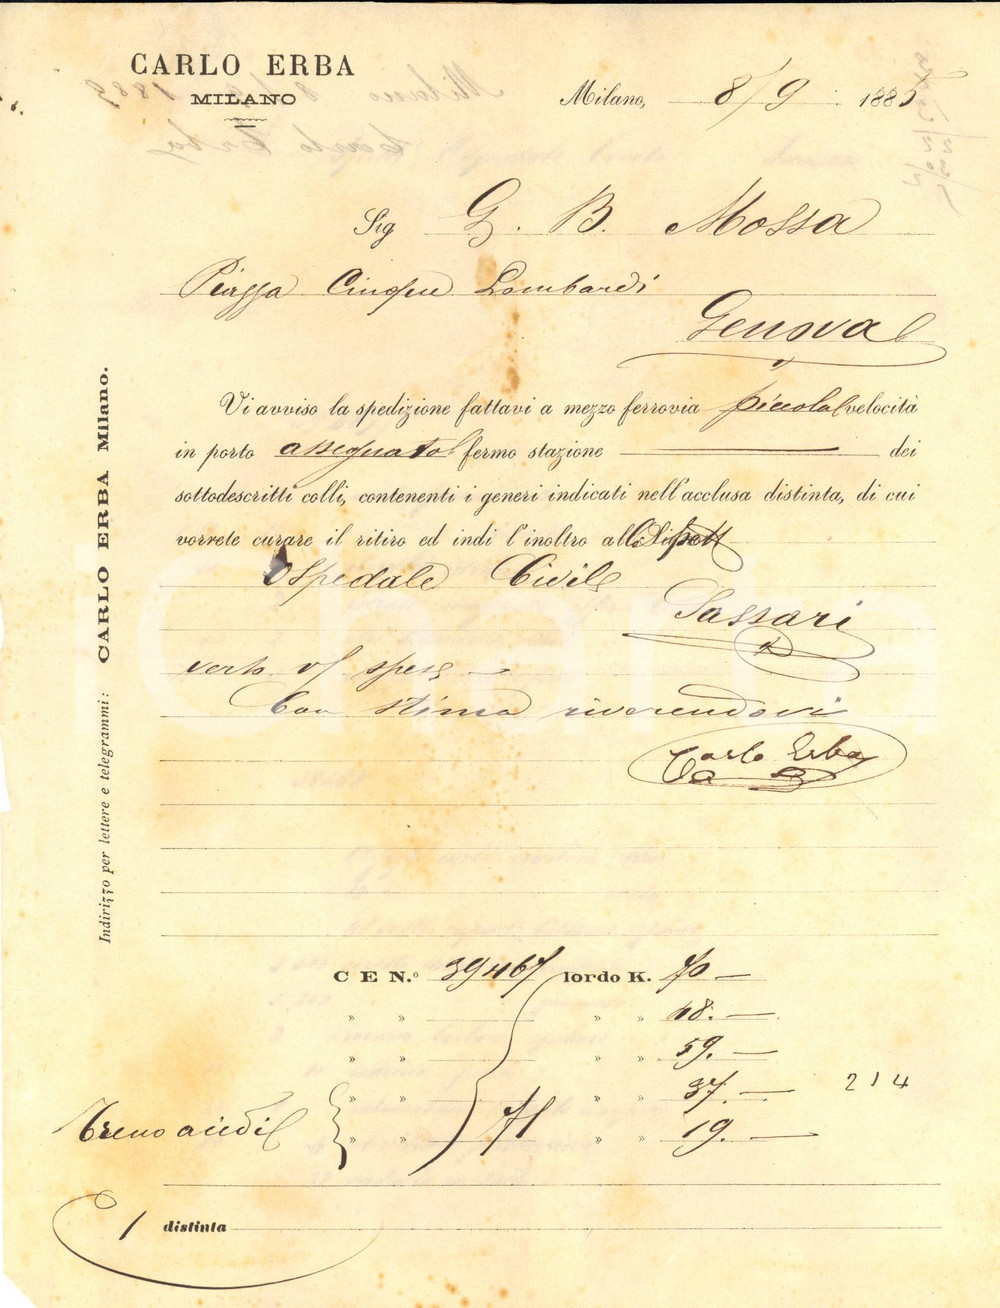 CARLO ERBA
MILANO
Milano, 8/9 1885
Sig G. B. Mossa
Piazza Cinque Lombardi
Genova
Vi avviso la spedizione fattavi a mezzo ferrovia piccola velocità
in porto assegnato fermo stazione — dei
sottodescritti colli, contenenti i generi indicati nell'acclusa distinta, di cui
vorrete curare il ritiro ed indi l'inoltro all
Ospedale Civile
Sassari
verso v/ spese
Con stima riverendovi
Carlo Erba
Indirizzo per lettere e telegrammi: CARLO ERBA Milano.
C E N.º 39467 lordo K. 70 —
» » » » 18. —
» » » » 59. —
» » » » 37. — 214
Treno acidi » » 71 » » 19. —
1 distinta
Milano 8 1889
Carlo Erba